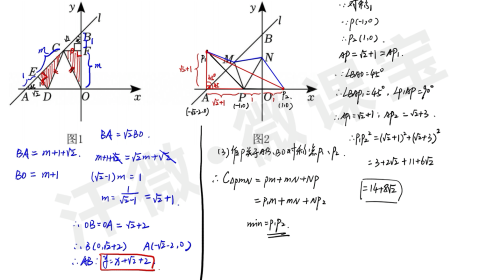 y
l
B
1
m
C
F
E
1
m
√2
A
D
O
x
图1
BA=√2BO
BA = m+1+√2
m+1+√2=√2m+√2
BO = m+1
(√2-1)m = 1
m = 1/(√2-1) = √2+1
∴ OB=OA = √2+2
∴ B(0,√2+2) A(-√2-2,0)
∴ AB: y=x+√2+2
y
l
B
P₁
M
N
√2+1
45°
A
P
O
P₂
x
(-√2-2,0)
(-1,0)
1
1
(1,0)
图2
(3)作P关于AB、BO对称点P₁、P₂
∴ C△PMN = PM+MN+NP
= P₁M+MN+NP₂
min = P₁P₂
∵ P(-1,0)
∴ P₂(1,0)
AP=√2+1=AP₁
∵ ∠BAO=45°
∴ ∠BAP₁=45°, ∠P₁AP=90°
∴ AP₁=√2+1, AP₂=√2+3
∴ P₁P₂²=(√2+1)²+(√2+3)²
= 3+2√2+11+6√2
= 14+8√2
汗微·微课宝